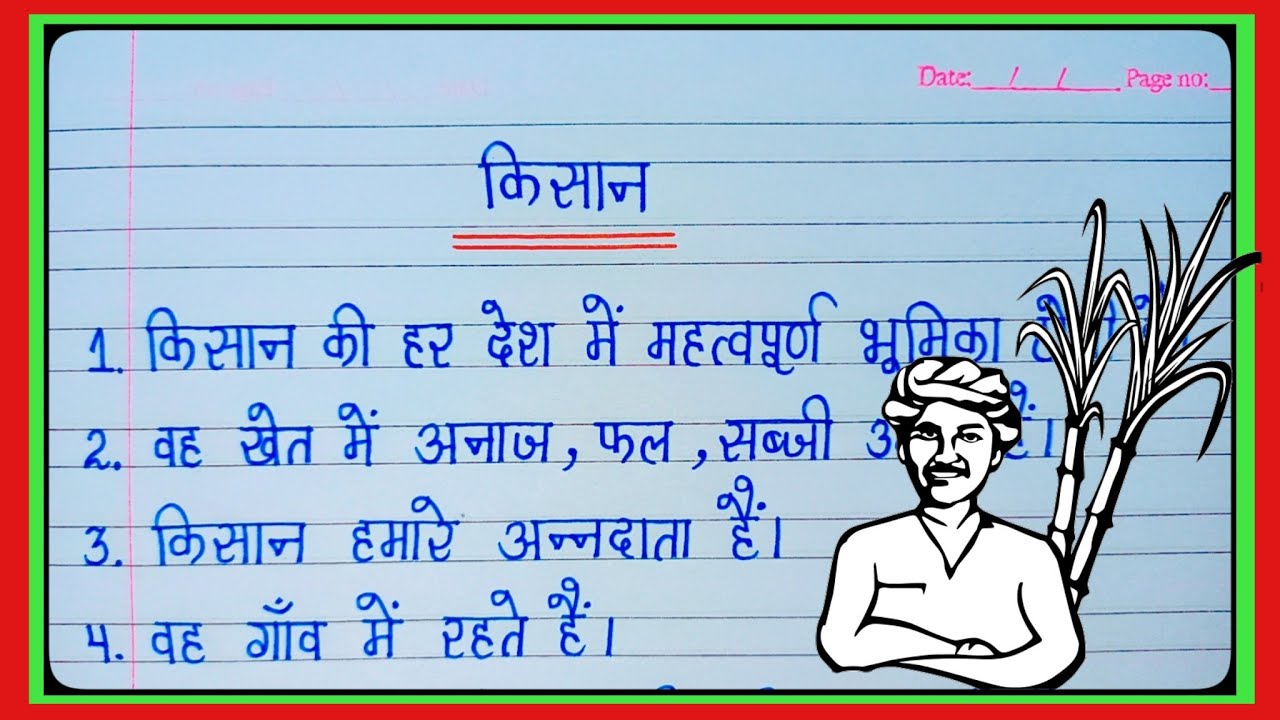 Date: / / Page no:
किसान
1. किसान की हर देश में महत्वपूर्ण भूमिका
2. वह खेत में अनाज, फल, सब्जी
3. किसान हमारे अन्नदाता हैं।
4. वह गाँव में रहते हैं।